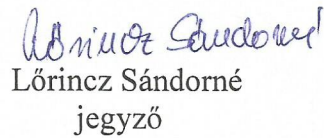 Lőrincz Sándorné
Lőrincz Sándorné
jegyző